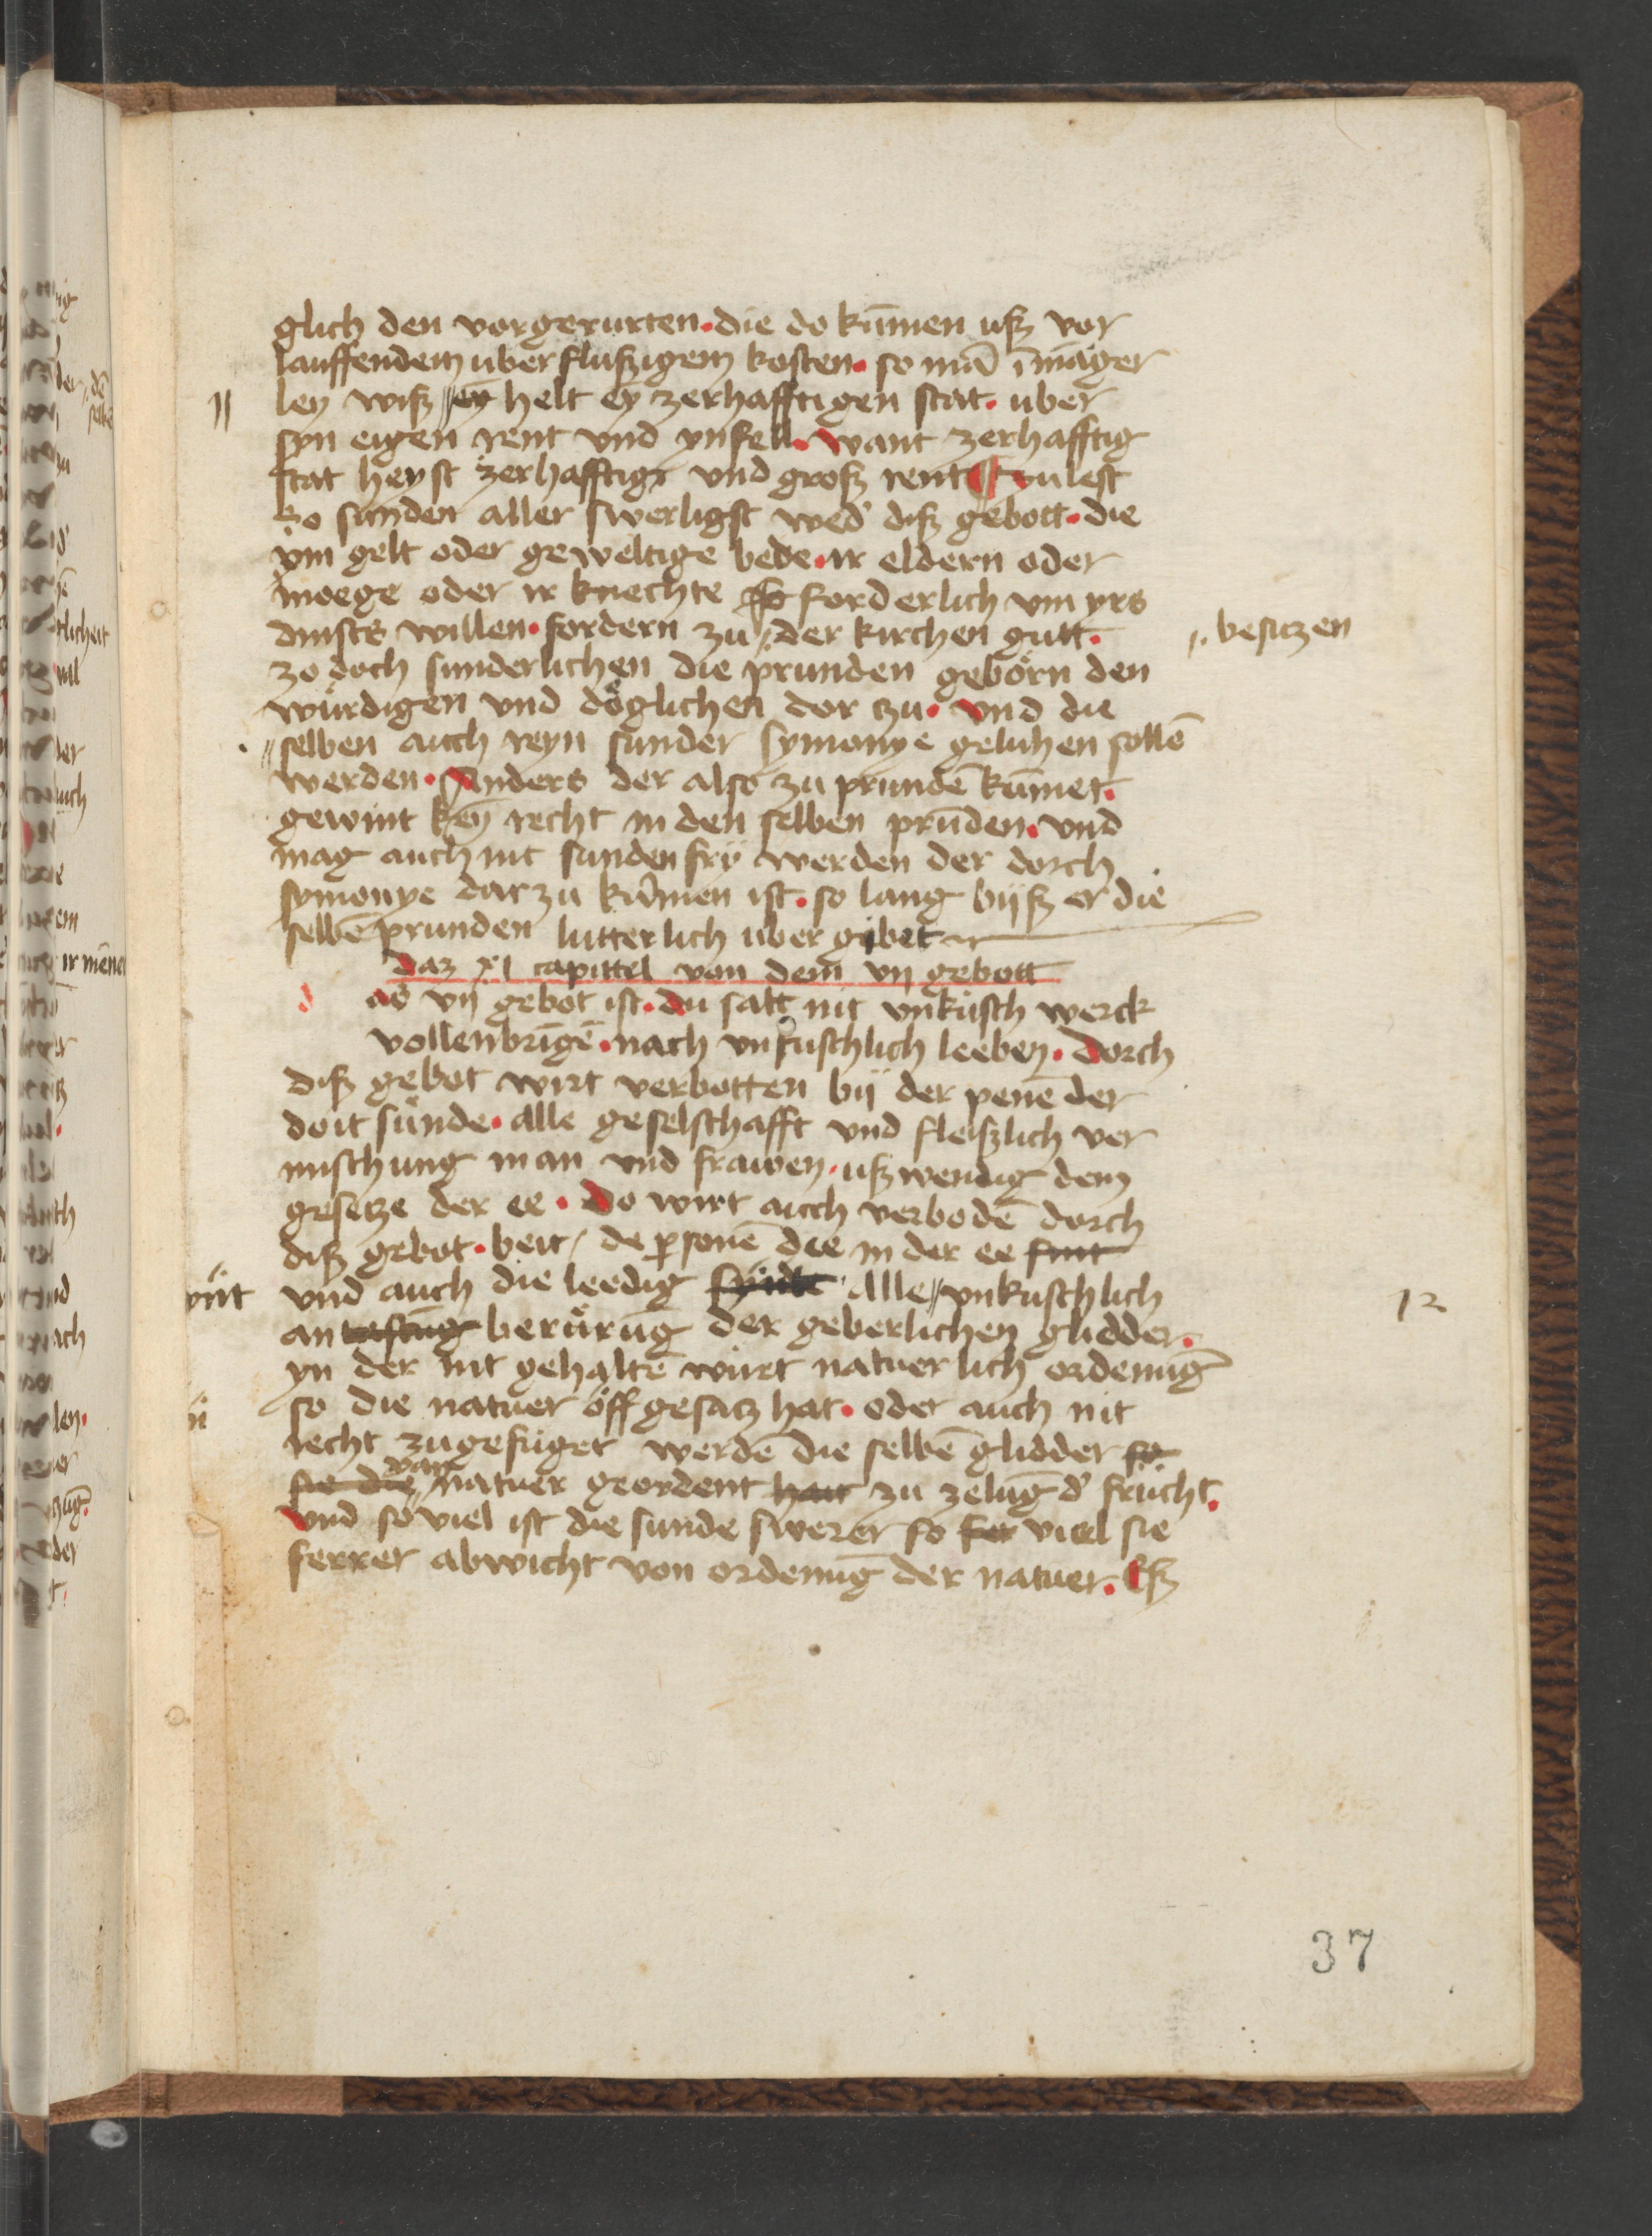 glich den vorgerurten. die do kūmen uß vor
lauffendem uberflußigem kosten. so mā ī māger
ley wiß ey helt ey zerhafftigen stat. uber
syn eigen rent vnd ynfell. want zerhafftig
stat heyst zerhafftige vnd groß rent zu lest
zo sunden aller swerligst wed' diß gebott. die
vm gelt oder geweltige bede. ir eldern oder
moege oder ir knechte forderlich vm yrs
dinsts willen. fordern zu der kirchen gutt.
besitzen
zo doch sunderlichen die prunden geborn den
würdigen vnd döglichen dor zu. vnd die
selben auch reyn sunder symonye geluhen sollē
werden. Anders der also zu prundē kūmet.
gewint keȳ recht in den selben prūden. vnd
mag auch nit sunden frÿ werden der dorch
symonye dar zu kūmen ist. so lang bijß er die
selbē prunden lutterlich uber gibet
Daz xi capittel von dem vij gebott
d as vij gebot ist. du salt nit vnkusch werck
vollenbrīgē. nach vnkuschlich leeben. Dorch
diß gebot wirt verbotten bij der penē der
doit sünde. alle geselschafft vnd fleißlich ver
mischung man vnd frawen. ußwendig dem
gesetze der ee. Do wirt auch verbodē dorch
diß gebot. beit de psonē die in der ee sint
vnd auch die leedig alle vnkuschlich
12
an berürūg der geberlichen glidder.
yn der nit gehaltē würt natuerlich ordenūg
so die natuer öff gesatz hat. oder auch nit
recht zugefüget werdē die selbē glidder so
sie die van natuer geordent hait zu zelūg d' frücht.
vnd so viel ist die sunde swerer so fer viel sie
ferrer abwicht von ordenūg der natuer. Eß
37